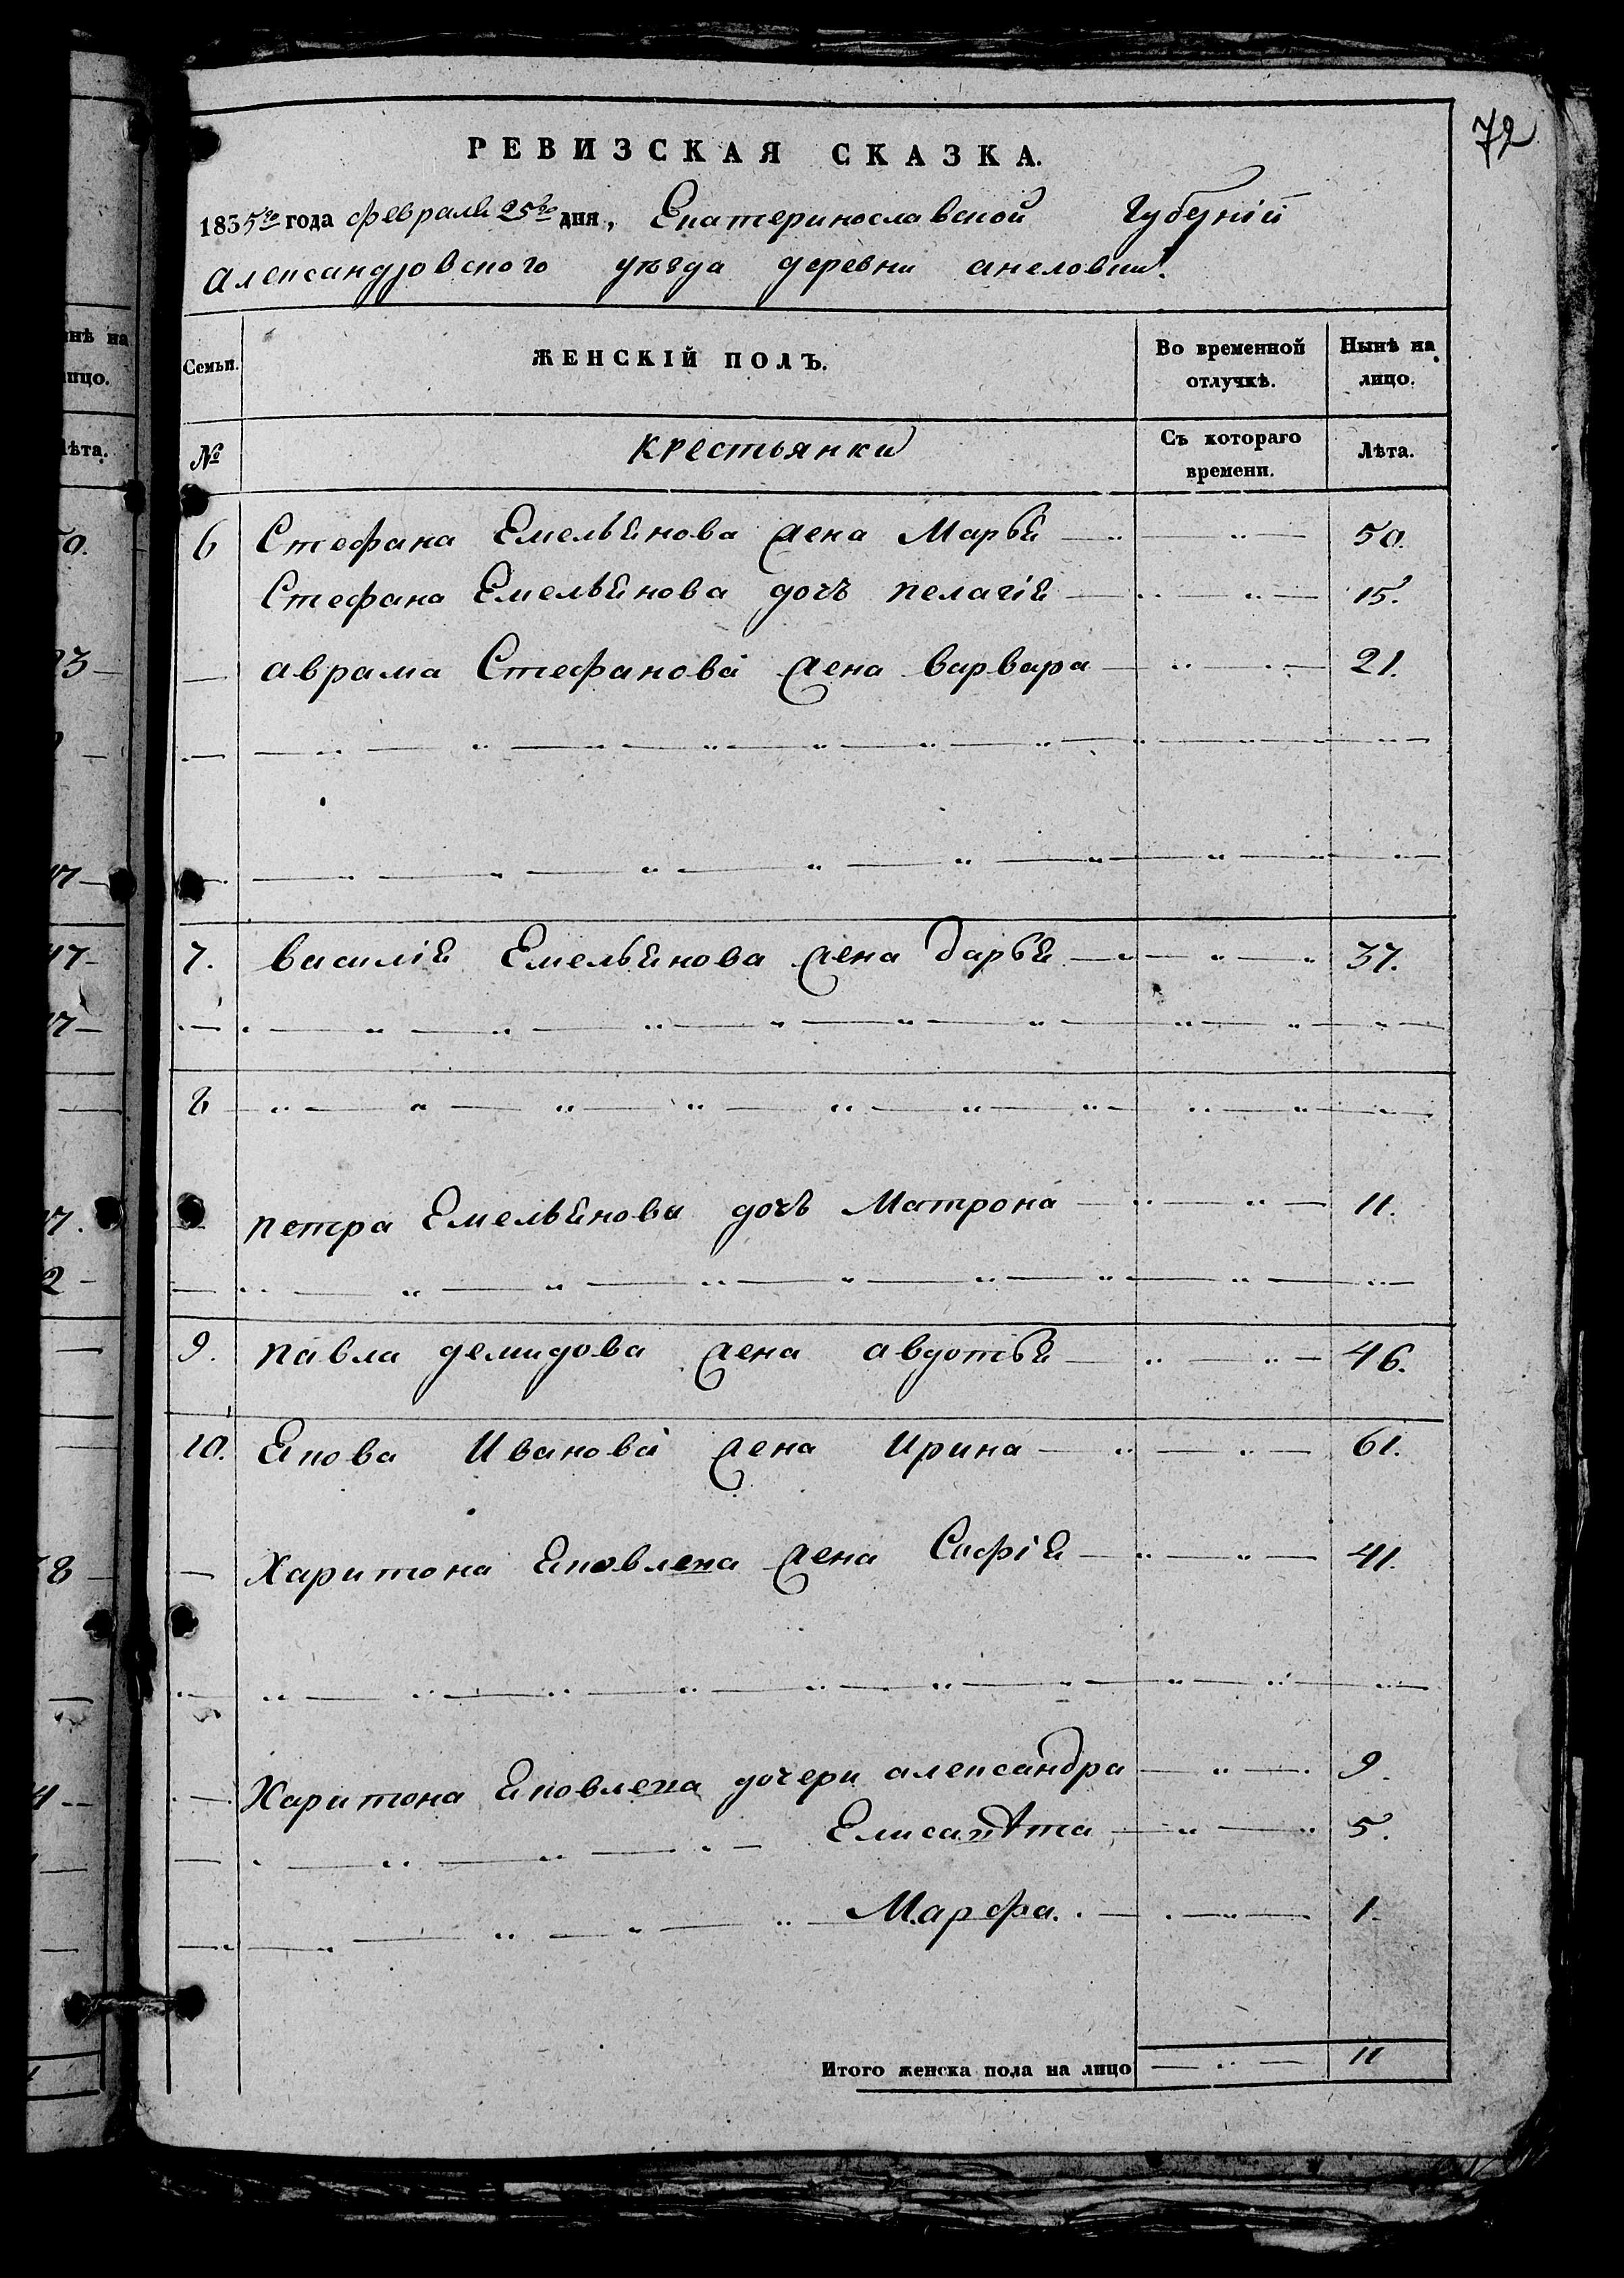 72
РЕВИЗСКАЯ СКАЗКА.
1835го года февраля 25го дня, Екатеринославской Губерніи
Александровского уѣзда деревни
Семьи. ЖЕНСКІЙ ПОЛЪ. Во временной отлучкѣ. Нынѣ на лицо.
№ крестьянки Съ котораго времени. Лѣта.
6 Стефана Емельянова жена Марья 50.
Стефана Емельянова дочь пелагія 15.
аврама Стефанова жена варвара 21.
7. василія Емельянова жена дарья 37.
8
петра Емельянова дочь Матрона 11.
9. павла демидова жена авдотья 46.
10. Якова Иванова жена Ирина 61.
Харитона Яковлева жена Софія 41.
Харитона Яковлева дочери александра 9.
5.
Марфа. 1.
Итого женска пола на лицо 11